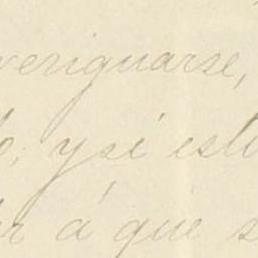 veriguarse,
o, y si esto
er á que s